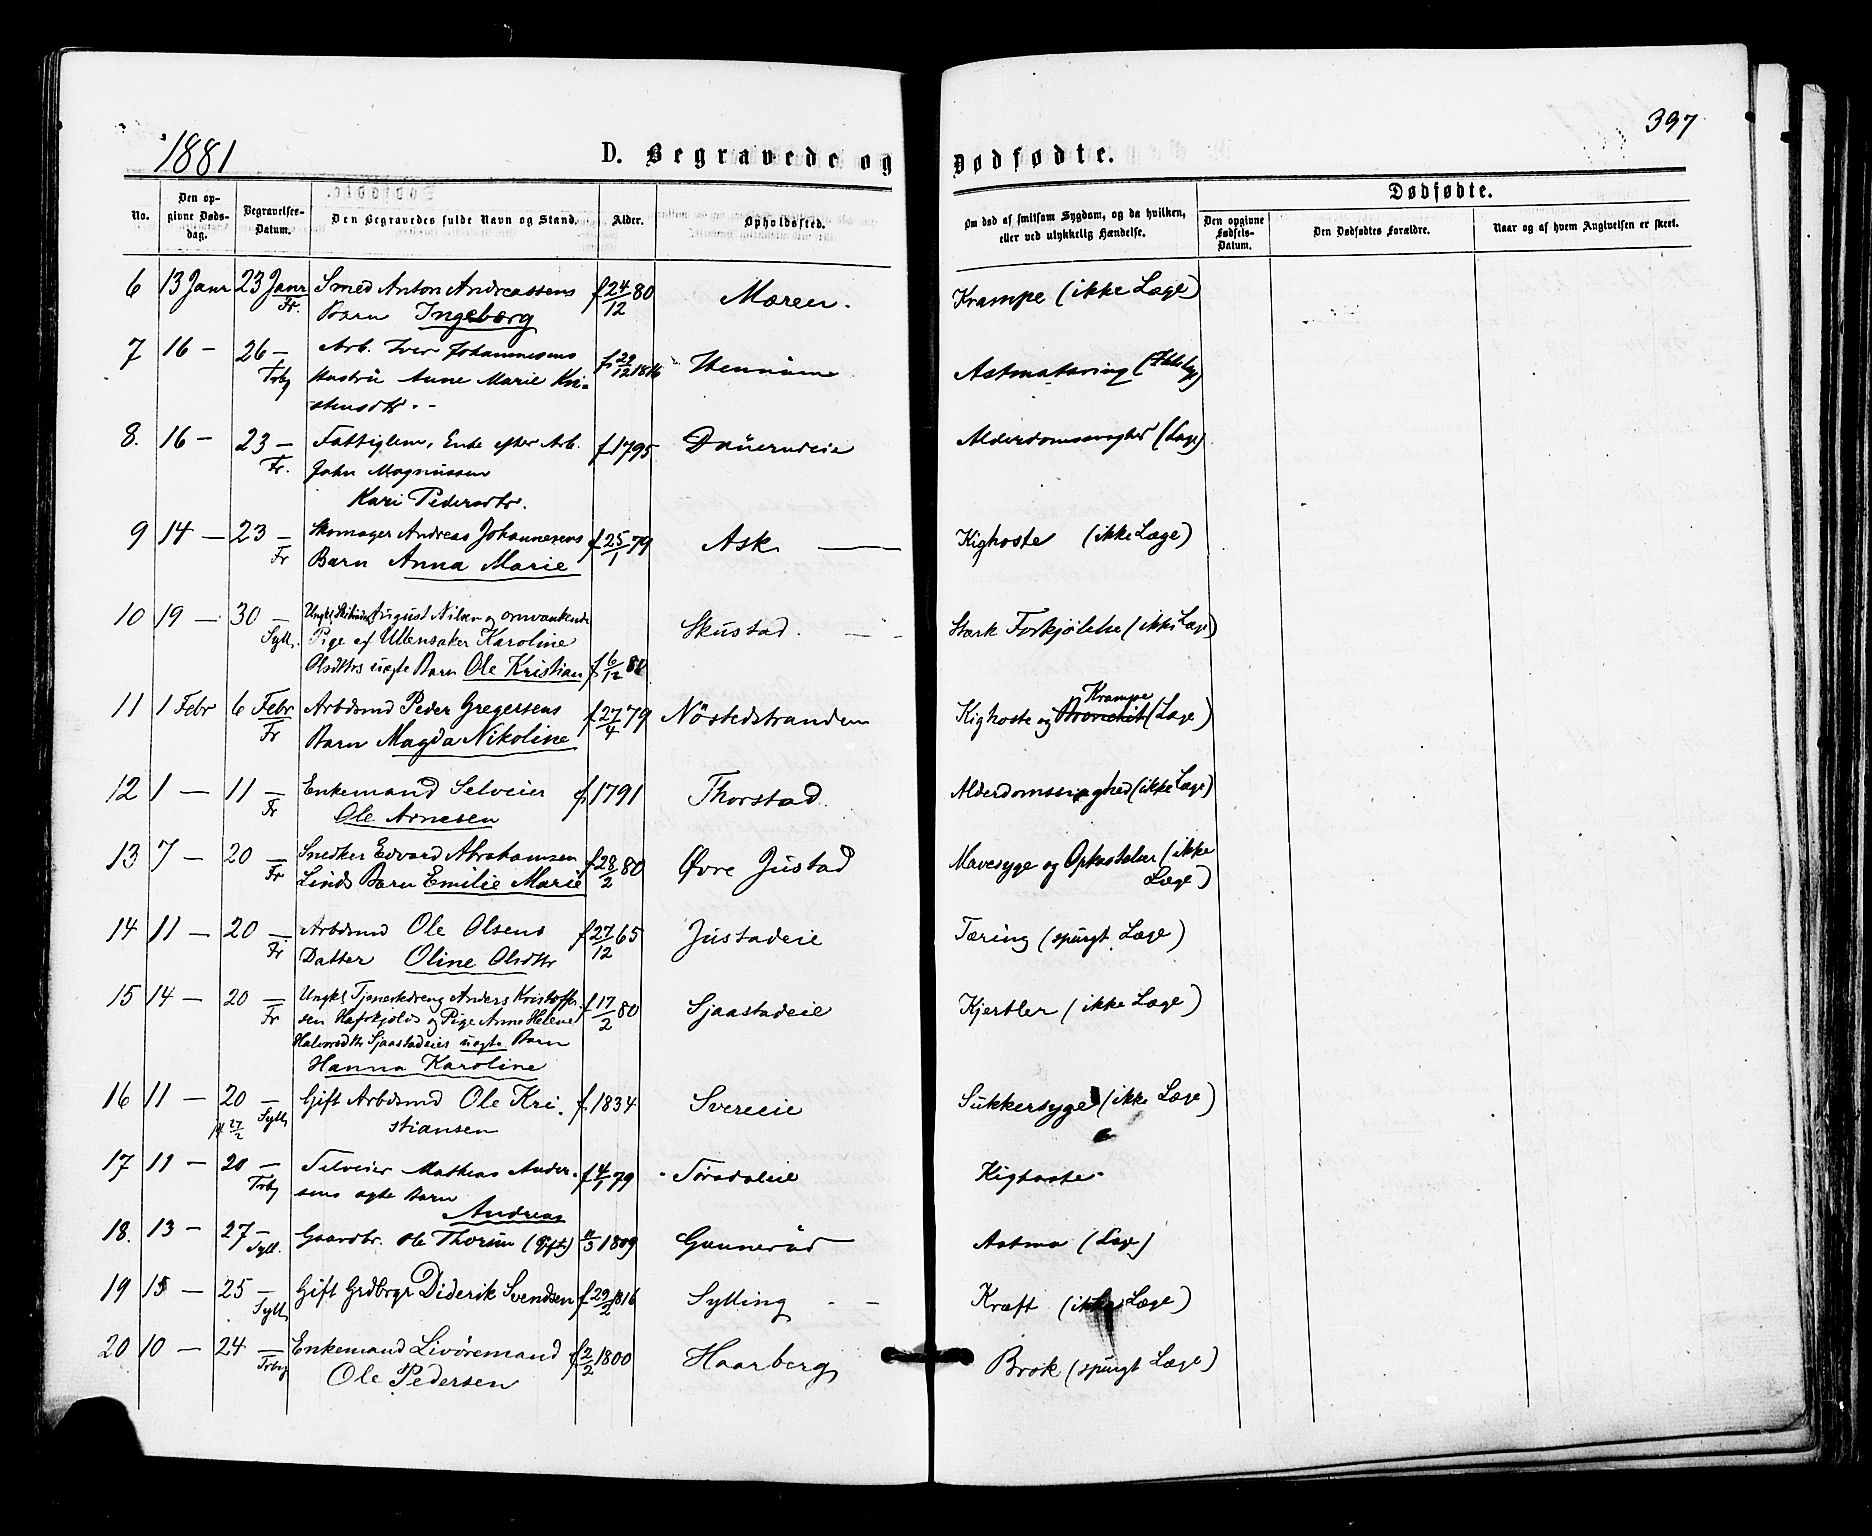 1881
D. Begravede og Dødfødte.
397
Dødfødte.
No.
Den op-
givne Døds-
dag.
Begravelses-
Datum.
Den Begravedes fulde Navn og Stand.
Alder.
Opholdssted.
Om død af smitsom Sygdom, og da hvilken,
eller ved ulykkelig Hændelse.
Den opgivne
Fødsels-
Datum.
Den Dødfødtes Forældre.
Naar og af hvem Angivelsen er skeet.
6 13 Janr 23 Janr Smed Anton Andreassens f 24/12 80 Mæren. Krampe (ikke Læge)
Fr. Barn Ingeborg
7 16 - 26 - Arb. Iver Johannesens f 29/12 1816 Astmatæring
Trbg Hustru Anne Marie Kri-
stensdtr. - -
8. 16 - 23 - Fattiglem, Enke efter Arb. f 1795 Alderdomssvaghed (Læge)
Fr. John Magnussen
Kari Pedersdtr.
9 14 - 23 - Skomager Andreas Johannesens f 25/1 79 Ask Kighoste (ikke Læge)
Fr Barn Anna Marie
10 19 - 30 - Ungkl August Nilsen og omvankende Skustad. Stærk Forkjølelse (ikke Læge)
Syll. Pige af Ullensaker Karoline
Olsdtrs uægte Barn Ole Kristian f 6/12 80
11 1 Febr 6 Febr Arbdsmd Peder Gregersens f 27/4 79 Nöstedstranden Kighoste og Bronchit Krampe (Læge)
Fr Barn Magda Nikoline
12 1 - 11 - Enkemand Selveier f 1791 Thorstad. Alderdomssvaghed (ikke Læge)
Fr Ole Arnesen
13 7 - 20 - Snedker Edvard Abrahamsen f 28/2 80 Øvre Justad Mavesyge og Opkastelser (ikke
Fr Linds Barn Emilie Marie Læge)
14 11 - 20 - Arbdsmd Ole Olsens f 27/12 65 Justadeie Tæring (spurgt Læge)
Fr Datter Oline Olsdtr
15 14 - 20 - Ungkl Tjenestedreng Anders Kristoffer- f 17/2 80 Sjaastadeie Kjertler (ikke Læge)
Fr sen Hafskjolds og Pige Anne Helene
Halvorsdtr Sjaastadeies uægte Barn
Hanna Karoline
16 11 - 20 - Gift Arbdsmd Ole Kri- f. 1834 Svereie Sukkersyge (ikke Læge)
27/2 Syll. stiansen
17 11 - 20 - Selveier Mathias Ander- f 4/1 79 Kighoste
Trbg sens ægte Barn
Andreas
18. 13 - 27 - Gaardbr. Ole Thorsen (Gift) 1809 Gunnerud Astma (Læge)
Syll.
19 15 - 25 - Gift Grdbrgr Diderik Svendsen f 29/2 1816 Sylling - - Kræft (ikke Læge)
Syll.
20 10 - 24 - Enkemand Livøremand f 2/2 1800 Haarberg Brok (spurgt Læge)
Trbg Ole Pedersen